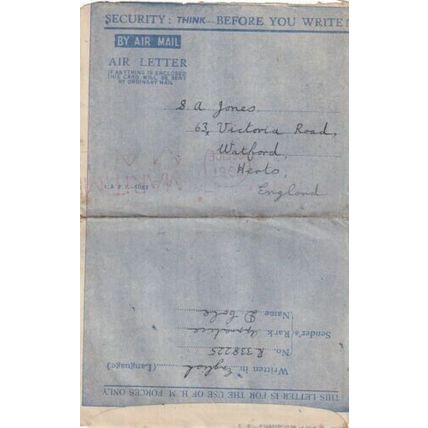 SECURITY: THINK - BEFORE YOU WRITE!
BY AIR MAIL
AIR LETTER
IF ANYTHING IS ENCLOSED
THIS CARD WILL BE SENT
BY ORDINARY MAIL
S A Jones
63, Victoria Road,
Watford,
Herts,
England
THIS LETTER IS FOR THE USE OF H. M. FORCES ONLY
Written in English (Language)
No. R 338225
Sender's/Rank Apprentice
Name D. Cole